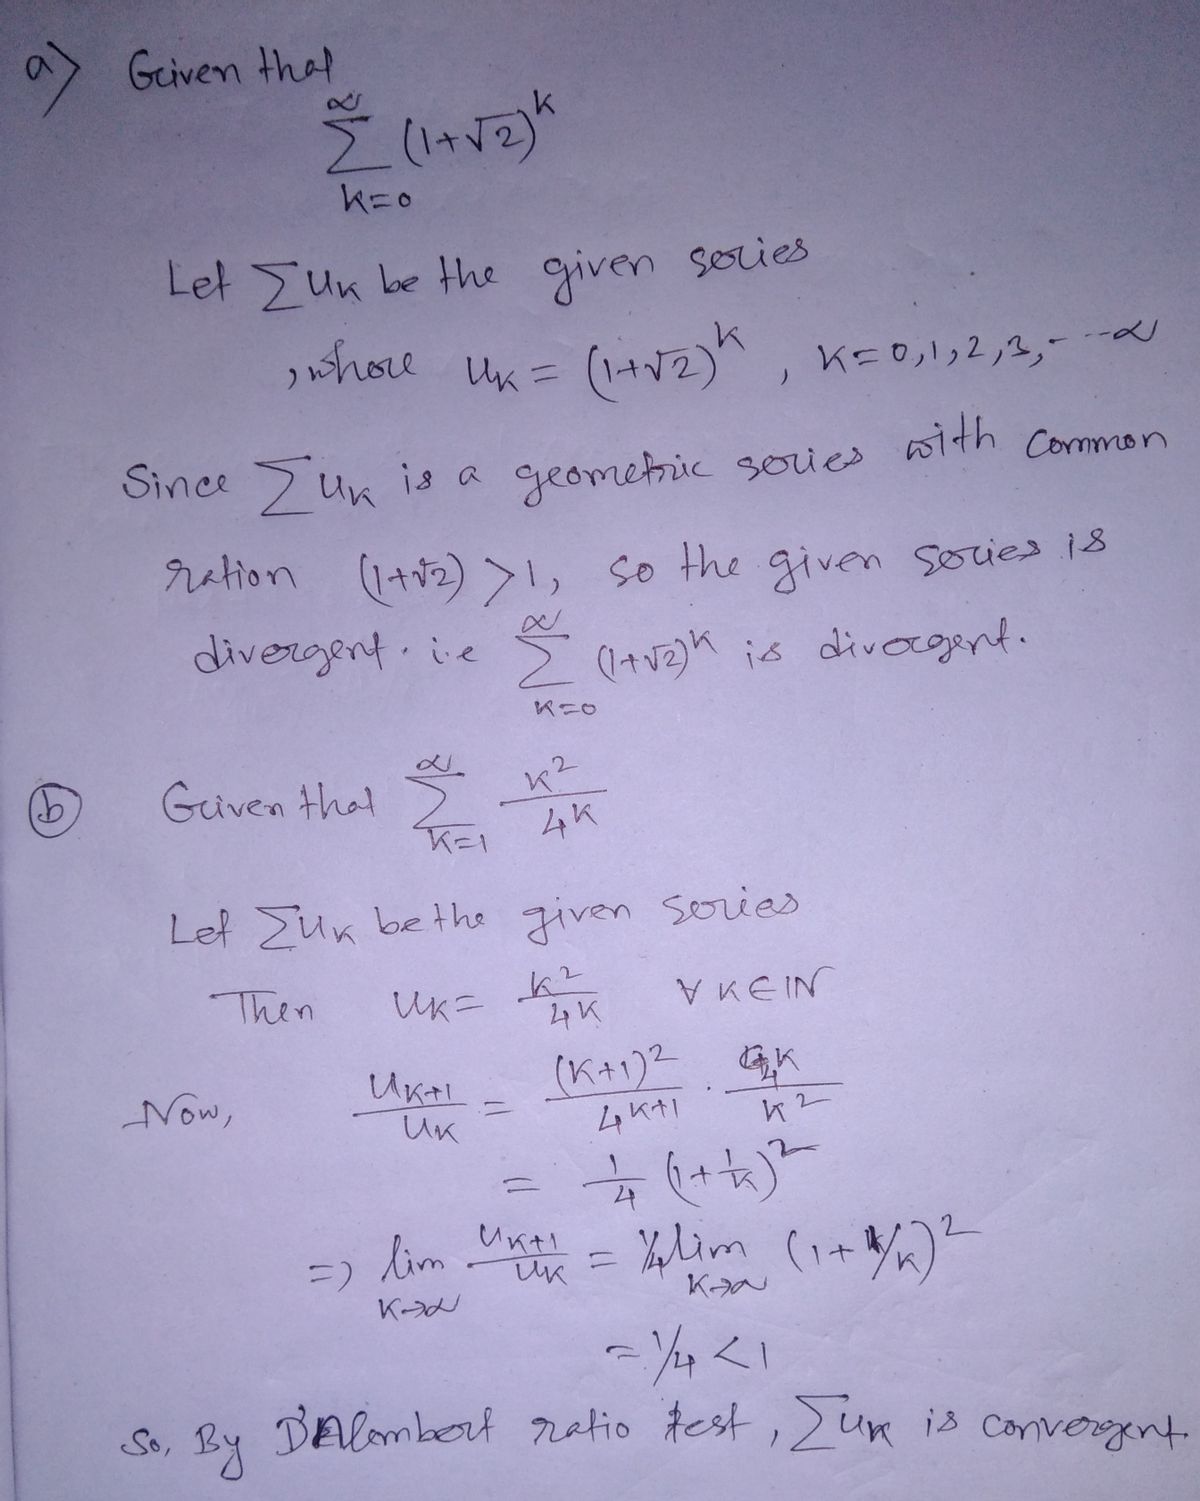 a) Given that
∞
∑ (1+√2)^k
k=0
Let ∑u_k be the given series
, where u_k = (1+√2)^k , k=0,1,2,3,- --∞
Since ∑u_k is a geometric series with common
ration (1+√2) >1, so the given series is
divergent. i.e ∑_{k=0}^{∞} (1+√2)^k is divergent.
(b) Given that ∑_{k=1}^{∞} k^2/4^k
Let ∑u_k be the given series
Then u_k = k^2/4^k ∀ k∈ℕ
Now, u_{k+1}/u_k = (k+1)^2/4^{k+1} · 4^k/k^2
= 1/4 (1+1/k)^2
=> lim_{k→∞} u_{k+1}/u_k = 1/4 lim_{k→∞} (1+1/k)^2
= 1/4 < 1
So, By D'Alembert ratio test, ∑u_k is convergent.